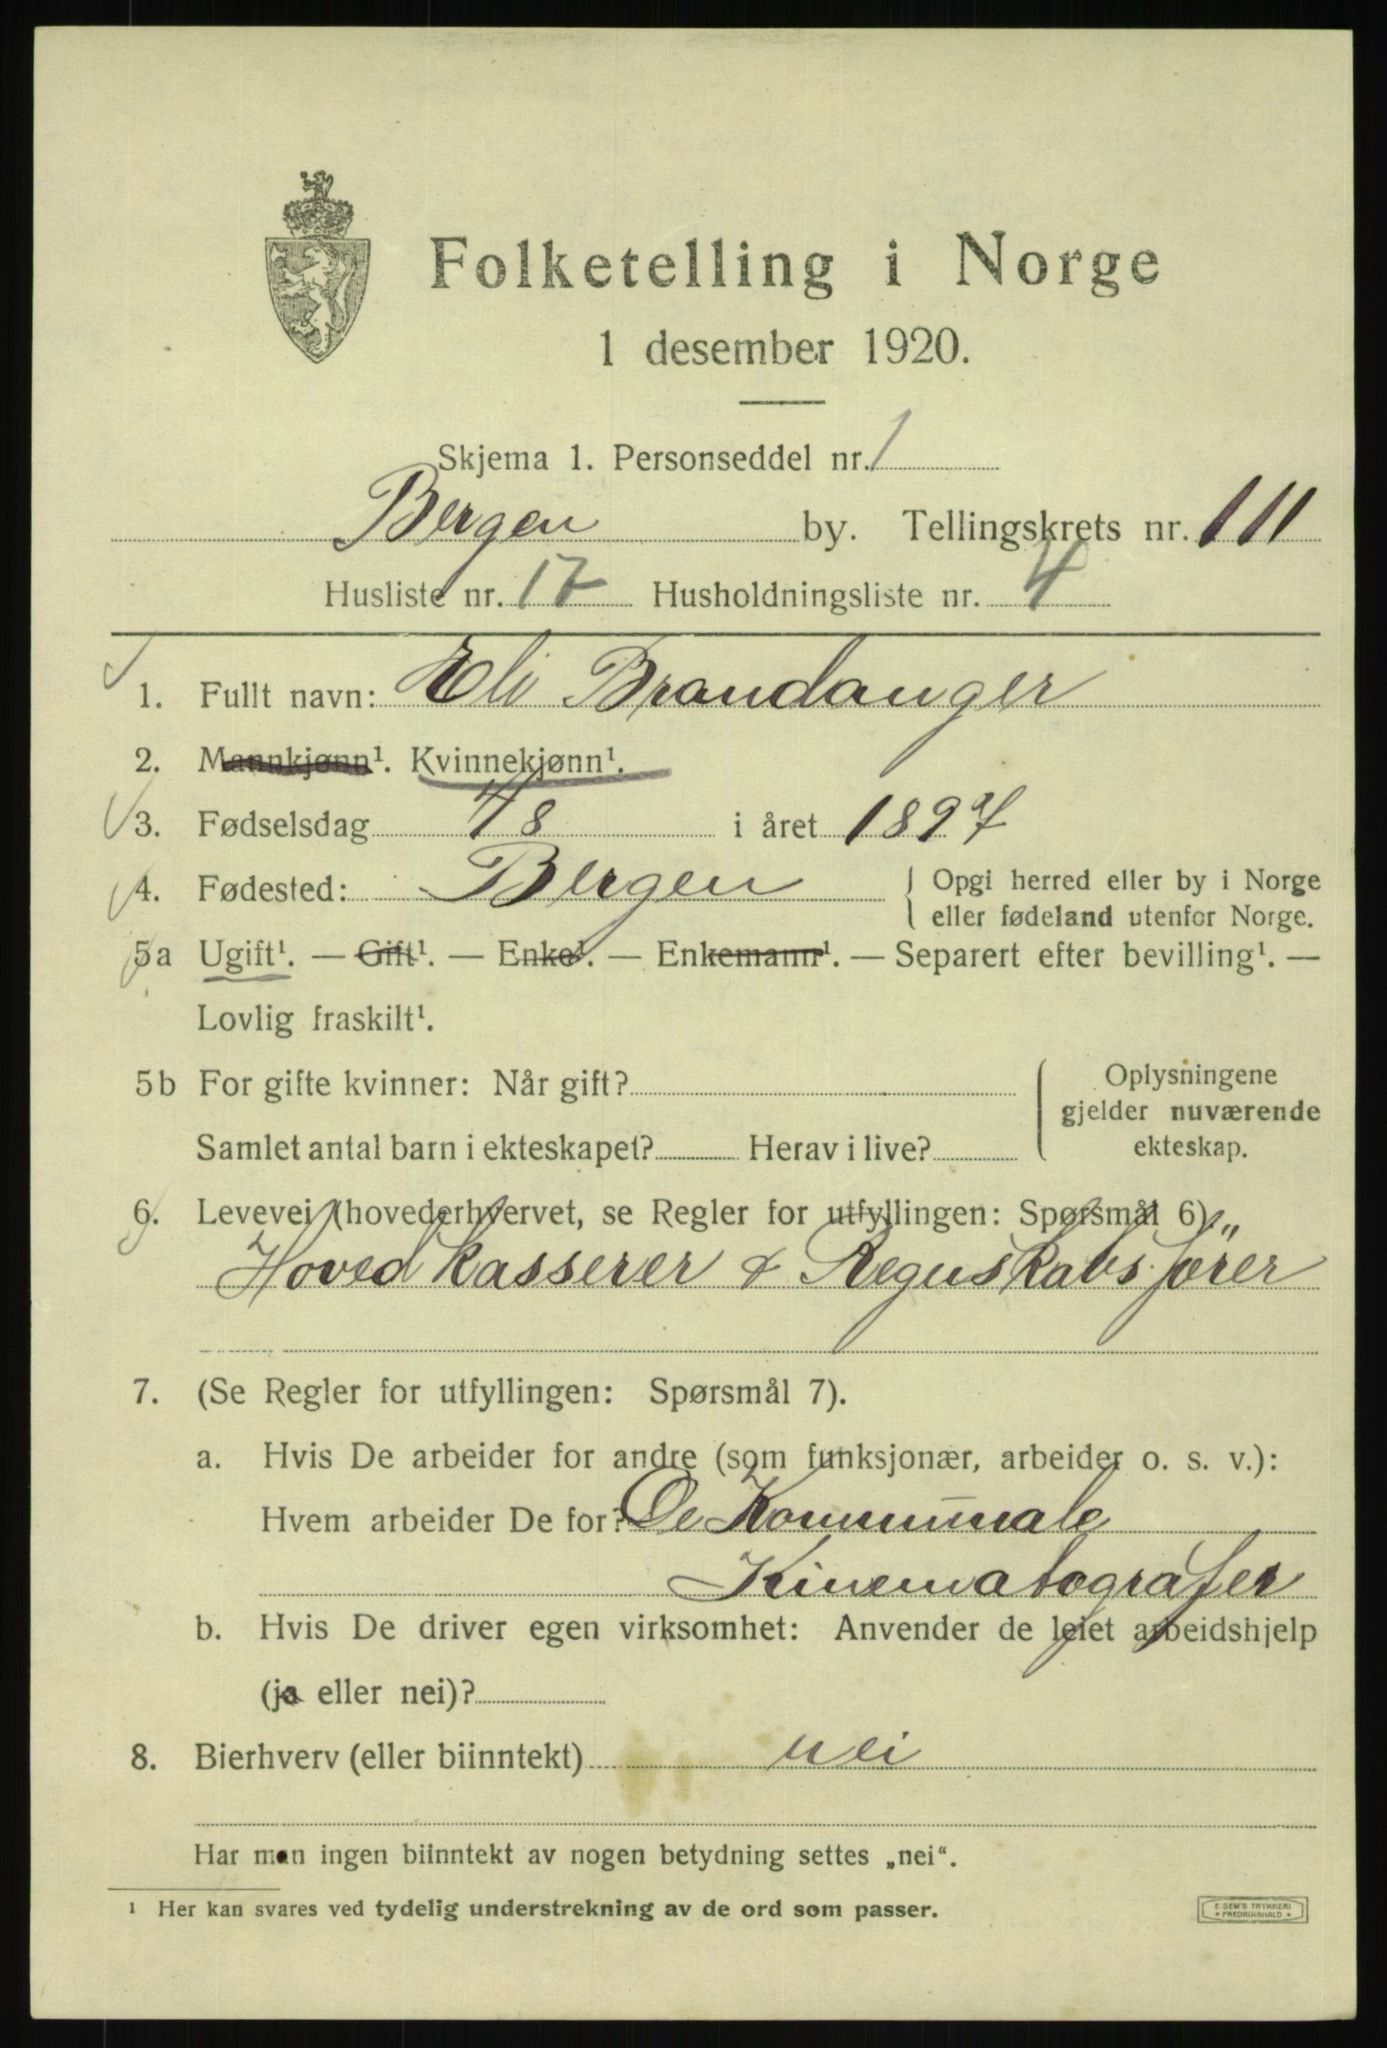 Folketelling i Norge
1 desember 1920.
Skjema 1. Personseddel nr. 1
Bergen by. Tellingskrets nr. 111
Husliste nr. 17 Husholdningsliste nr. 4
1. Fullt navn: Eli Brandanger
2. Mannkjønn¹. Kvinnekjønn¹.
3. Fødselsdag 4/8 i året 1897
4. Fødested: Bergen { Opgi herred eller by i Norge
eller fødeland utenfor Norge.
5a Ugift¹. — Gift¹. — Enke¹. — Enkemann¹. — Separert efter bevilling¹. —
Lovlig fraskilt¹.
5b For gifte kvinner: Når gift? { Oplysningene
gjelder nuværende
Samlet antal barn i ekteskapet? Herav i live? ekteskap.
6. Levevei (hovederhvervet, se Regler for utfyllingen: Spørsmål 6)
Hovedkasserer & Regnskabsfører
7. (Se Regler for utfyllingen: Spørsmål 7).
a. Hvis De arbeider for andre (som funksjonær, arbeider o. s. v.):
Hvem arbeider De for? De Kommunale
Kinematografer
b. Hvis De driver egen virksomhet: Anvender de leiet arbeidshjelp
(ja eller nei)?
8. Bierhverv (eller biinntekt) nei
Har man ingen biinntekt av nogen betydning settes „nei“.
¹ Her kan svares ved tydelig understrekning av de ord som passer.
E. SEM'S TRYKKERI
* FREDRIKSHALD *